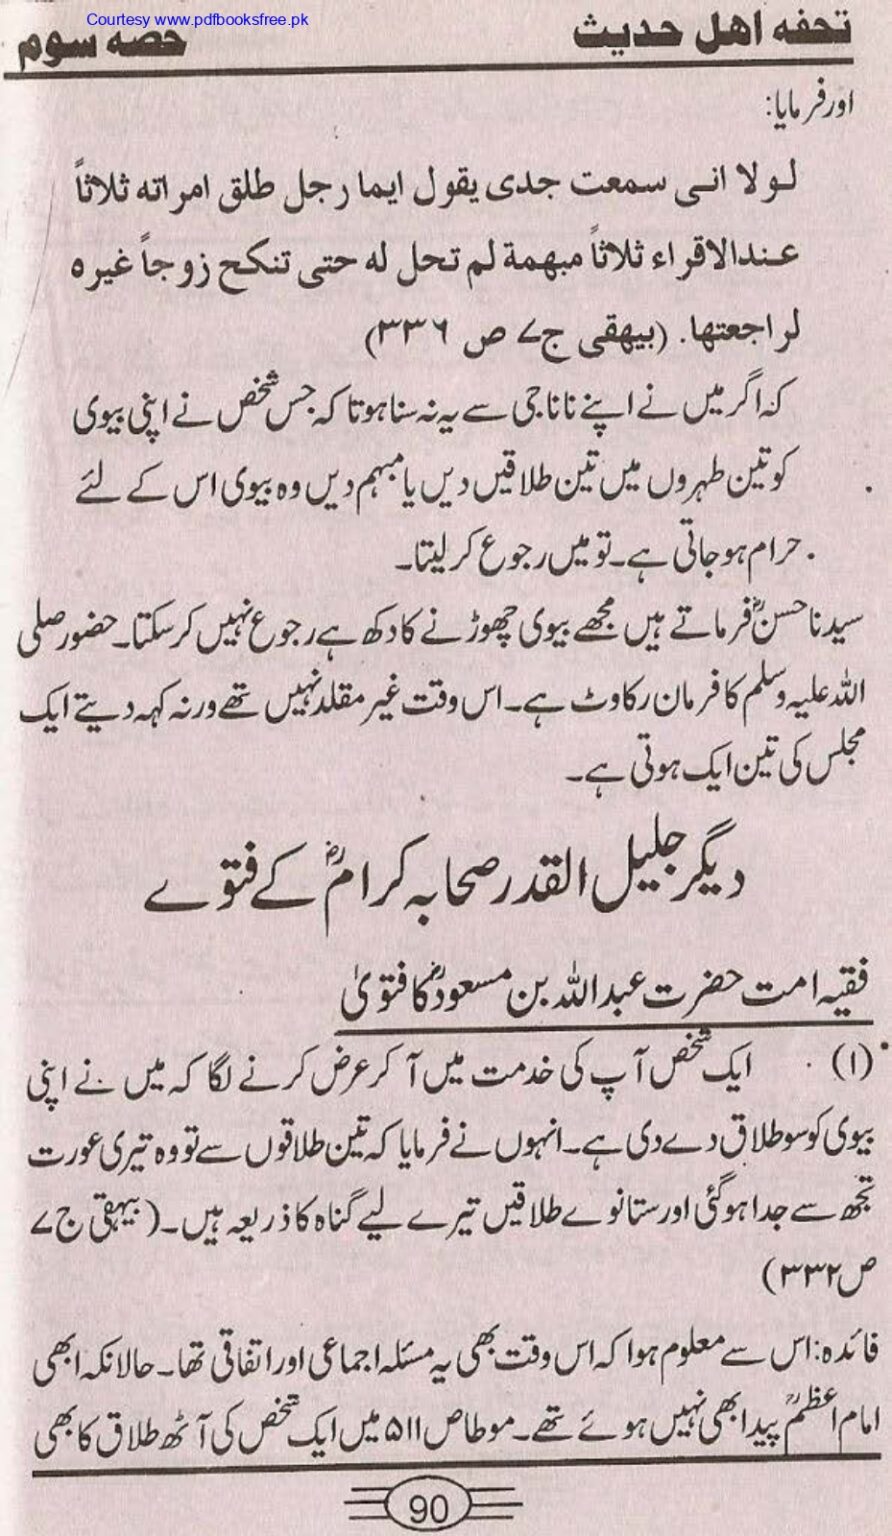 Courtesy www.pdfbooksfree.pk
تحفہ اھل حدیث
حصہ سوم
اور فرمایا:
لولا انی سمعت جدی یقول ایما رجل طلق امراتہ ثلاثاً
عندالاقراء ثلاثاً مبھمة لم تحل لہ حتی تنکح زوجاً غیرہ
لراجعتھا. (بیھقی ج۷ ص ۳۳۶)
کہ اگر میں نے اپنے نانا جی سے یہ نہ سنا ہوتا کہ جس شخص نے اپنی بیوی
کو تین طہروں میں تین طلاقیں دیں یا مبہم دیں وہ بیوی اس کے لئے
حرام ہو جاتی ہے۔ تو میں رجوع کر لیتا۔
سیدنا حسنؓ فرماتے ہیں مجھے بیوی چھوڑنے کا دکھ ہے رجوع نہیں کر سکتا۔ حضور صلی
اللہ علیہ وسلم کا فرمان رکاوٹ ہے۔ اس وقت غیر مقلد نہیں تھے ورنہ کہہ دیتے ایک
مجلس کی تین ایک ہوتی ہے۔
دیگر جلیل القدر صحابہ کرامؓ کے فتوے
فقیہ امت حضرت عبداللہ بن مسعودؓ کا فتویٰ
(۱) ایک شخص آپ کی خدمت میں آ کر عرض کرنے لگا کہ میں نے اپنی
بیوی کو سو طلاق دے دی ہے۔ انہوں نے فرمایا کہ تین طلاقوں سے تو وہ تیری عورت
تجھ سے جدا ہو گئی اور ستانوے طلاقیں تیرے لیے گناہ کا ذریعہ ہیں۔ (بیہقی ج۷
ص۳۳۲)
فائدہ: اس سے معلوم ہوا کہ اس وقت بھی یہ مسئلہ اجماعی اور اتفاقی تھا۔ حالانکہ ابھی
امام اعظمؒ پیدا بھی نہیں ہوئے تھے۔ موطا ص ۵۱۱ میں ایک شخص کی آٹھ طلاق کا بھی
90